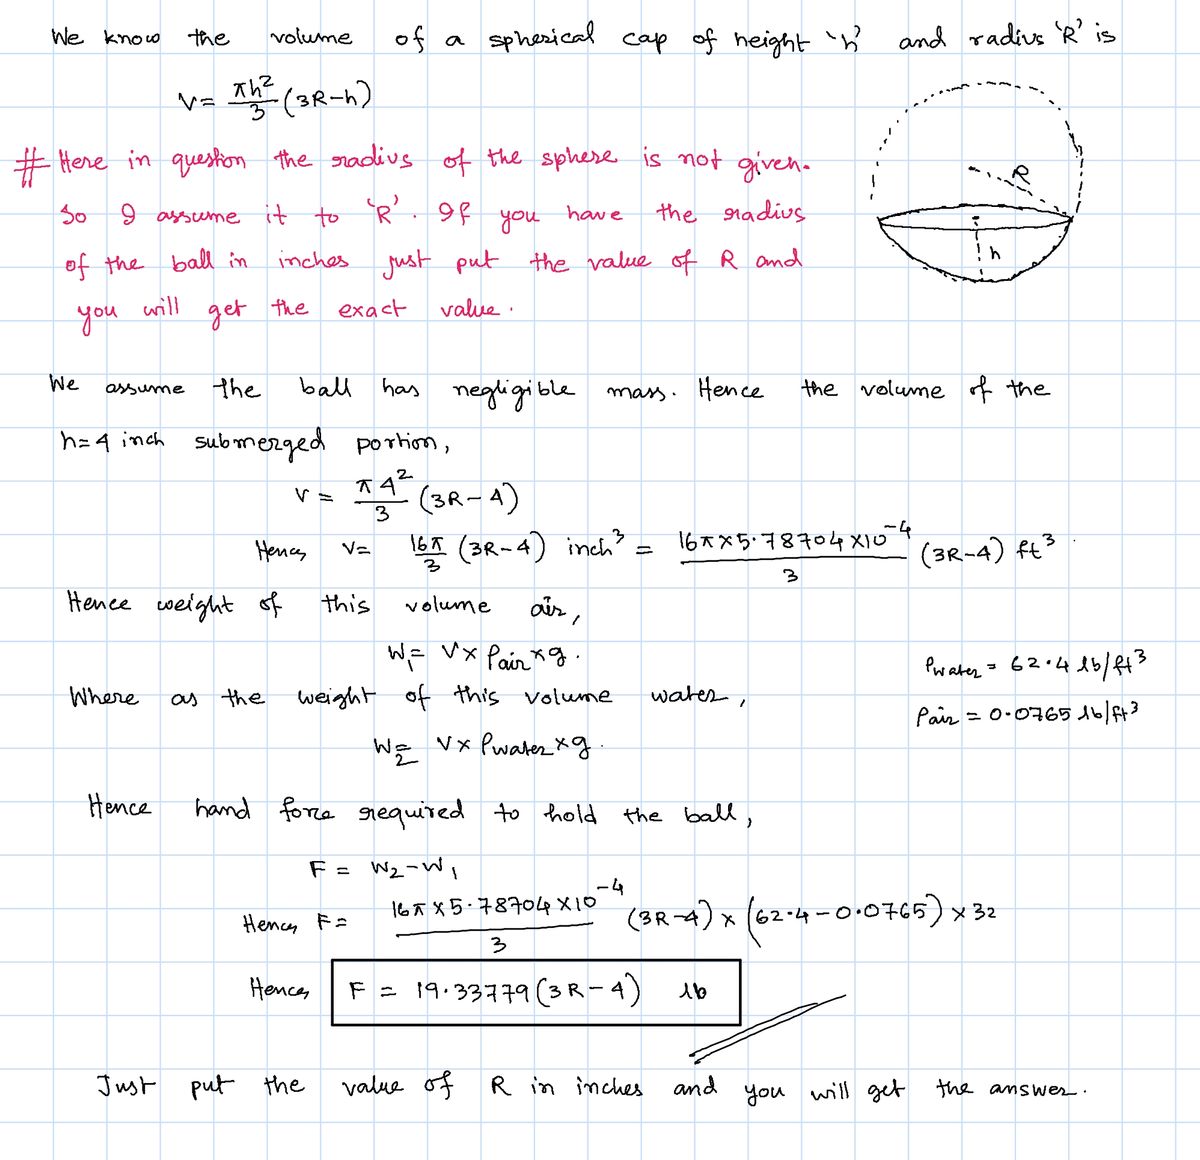 We know the volume of a spherical cap of height 'h' and radius 'R' is
V = πh²/3 (3R-h)
# Here in question the radius of the sphere is not given.
So I assume it to 'R'. If you have the radius
of the ball in inches just put the value of R and
you will get the exact value.
R
h
We assume the ball has negligible mass. Hence the volume of the
h=4 inch submerged portion,
V = π4²/3 (3R-4)
Hence, V = 16π/3 (3R-4) inch³ = 16π×5.78704×10⁻⁴/3 (3R-4) ft³.
Hence weight of this volume air,
W₁ = V×ρair×g.
ρwater = 62.4 lb/ft³
Where as the weight of this volume water,
ρair = 0.0765 lb/ft³
W₂ = V×ρwater×g.
Hence hand force required to hold the ball,
F = W₂-W₁
Hence, F = 16π×5.78704×10⁻⁴/3 (3R-4)×(62.4-0.0765)×32
Hence, F = 19.33779(3R-4) lb
Just put the value of R in inches and you will get the answer.